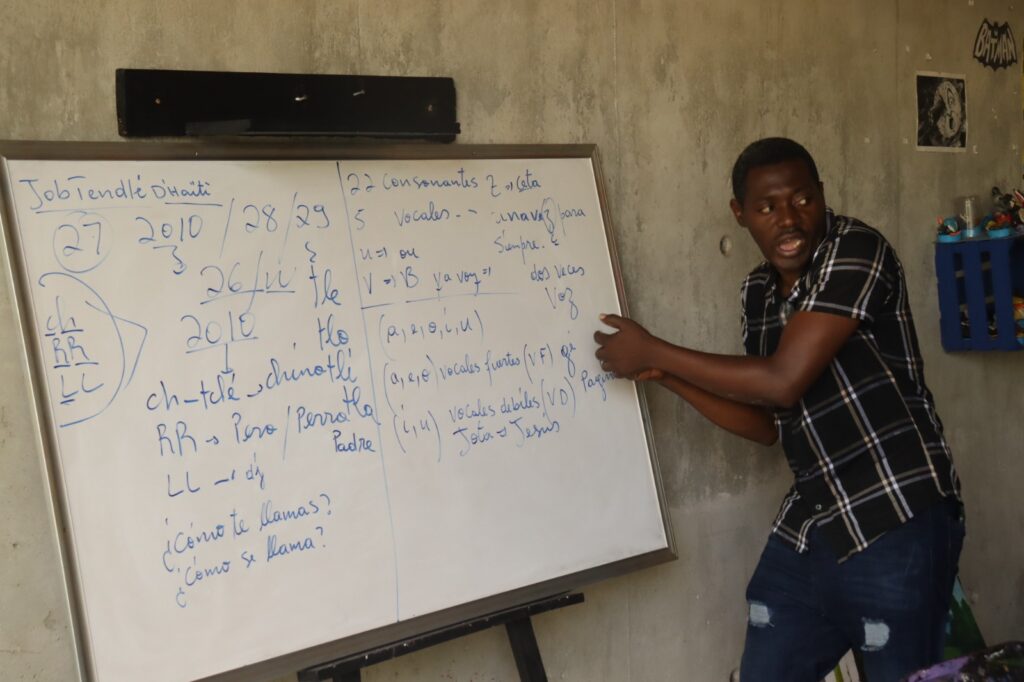 JobTendlé D'Haïti
27 2010 / 28/29
3 3
26/u tle
2010 tlo
ch
RR
LL
ch-tclé → chinotlé
RR → Pero / Perro tla
Padre
LL → dj
¿Cómo te llamas?
¿Cómo se llama?
22 Consonantes Z → ceta
5 Vocales -- una voz para
siempre.
u => ou
V => B ya voz => dos veces
Voz
(a, e, o, i, u)
(a, e, o) vocales fuertes (VF) gi
(i, u) vocales debiles (VD)
Jota → Jesús
BATMAN